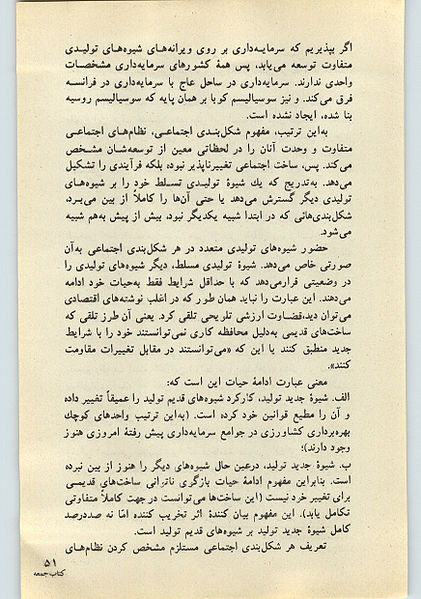 اگر بپذیریم که سرمایه‌داری بر روی ویرانه‌های شیوه‌های تولیدی
متفاوت توسعه می‌یابد، پس همهٔ کشورهای سرمایه‌داری مشخصات
واحدی ندارند. سرمایه‌داری در ساحل عاج با سرمایه‌داری در فرانسه
فرق می‌کند. و نیز سوسیالیسم کوبا بر همان پایه که سوسیالیسم روسیه
بنا شده، ایجاد نشده است.
به‌این ترتیب، مفهوم شکل‌بندی اجتماعی، نظام‌های اجتماعی
متفاوت و وحدت آنان را در لحظاتی معین از توسعه‌شان مشخص
می‌کند. پس، ساخت اجتماعی تغییرناپذیر نبوده، بلکه فرآیندی را تشکیل
می‌دهد. به‌تدریج که یك شیوهٔ تولیدی تسلط خود را بر شیوه‌های
تولیدی دیگر گسترش می‌دهد یا حتی آن‌ها را کاملاً از بین می‌برد،
شکل‌بندی‌هائی که در ابتدا شبیه یکدیگر نبود، بیش از پیش به‌هم شبیه
می‌شود.
حضور شیوه‌های تولیدی متعدد در هر شکل‌بندی اجتماعی به‌آن
صورتی خاص می‌دهد. شیوهٔ تولیدی مسلط، دیگر شیوه‌های تولیدی را
در وضعیتی قرارمی‌دهد که با حداقل شرایط فقط به‌حیات خود ادامه
می‌دهند. این عبارت را نباید همان طور که در اغلب نوشته‌های اقتصادی
می‌توان دید،قضاوت ارزشی تلویحی تلقی کرد. یعنی آن طرز تلقی که
ساخت‌های قدیمی به‌دلیل محافظه کاری نمی‌توانستند خود را با شرایط
جدید منطبق کنند یا این که «می‌توانستند در مقابل تغییرات مقاومت
کنند».
معنی عبارت ادامهٔ حیات این است که:
الف. شیوهٔ جدید تولید، کارکرد شیوه‌های قدیم تولید را عمیقاً تغییر داده
و آن را مطیع قوانین خود کرده است. (به‌این ترتیب واحدهای کوچك
بهره‌برداری کشاورزی در جوامع سرمایه‌داری پیش رفتهٔ امروزی هنوز
وجود دارند)؛
ب. شیوهٔ جدید تولید، درعین حال شیوه‌های دیگر را هنوز از بین نبرده
است. بنابراین مفهوم ادامهٔ حیات بازگری ناترانی ساخت‌های قدیمی
برای تغییر خود نیست (این ساخت‌ها می‌توانست در جهت کاملاً متفاوتی
تکامل یابد). این مفهوم بیان کنندهٔ اثر تخریب کننده امّا نه صددرصد
کامل شیوهٔ جدید تولید بر شیوه‌های قدیم تولید است.
تعریف هر شکل‌بندی اجتماعی مستلزم مشخص کردن نظام‌های
۵۱
کتاب جمعه